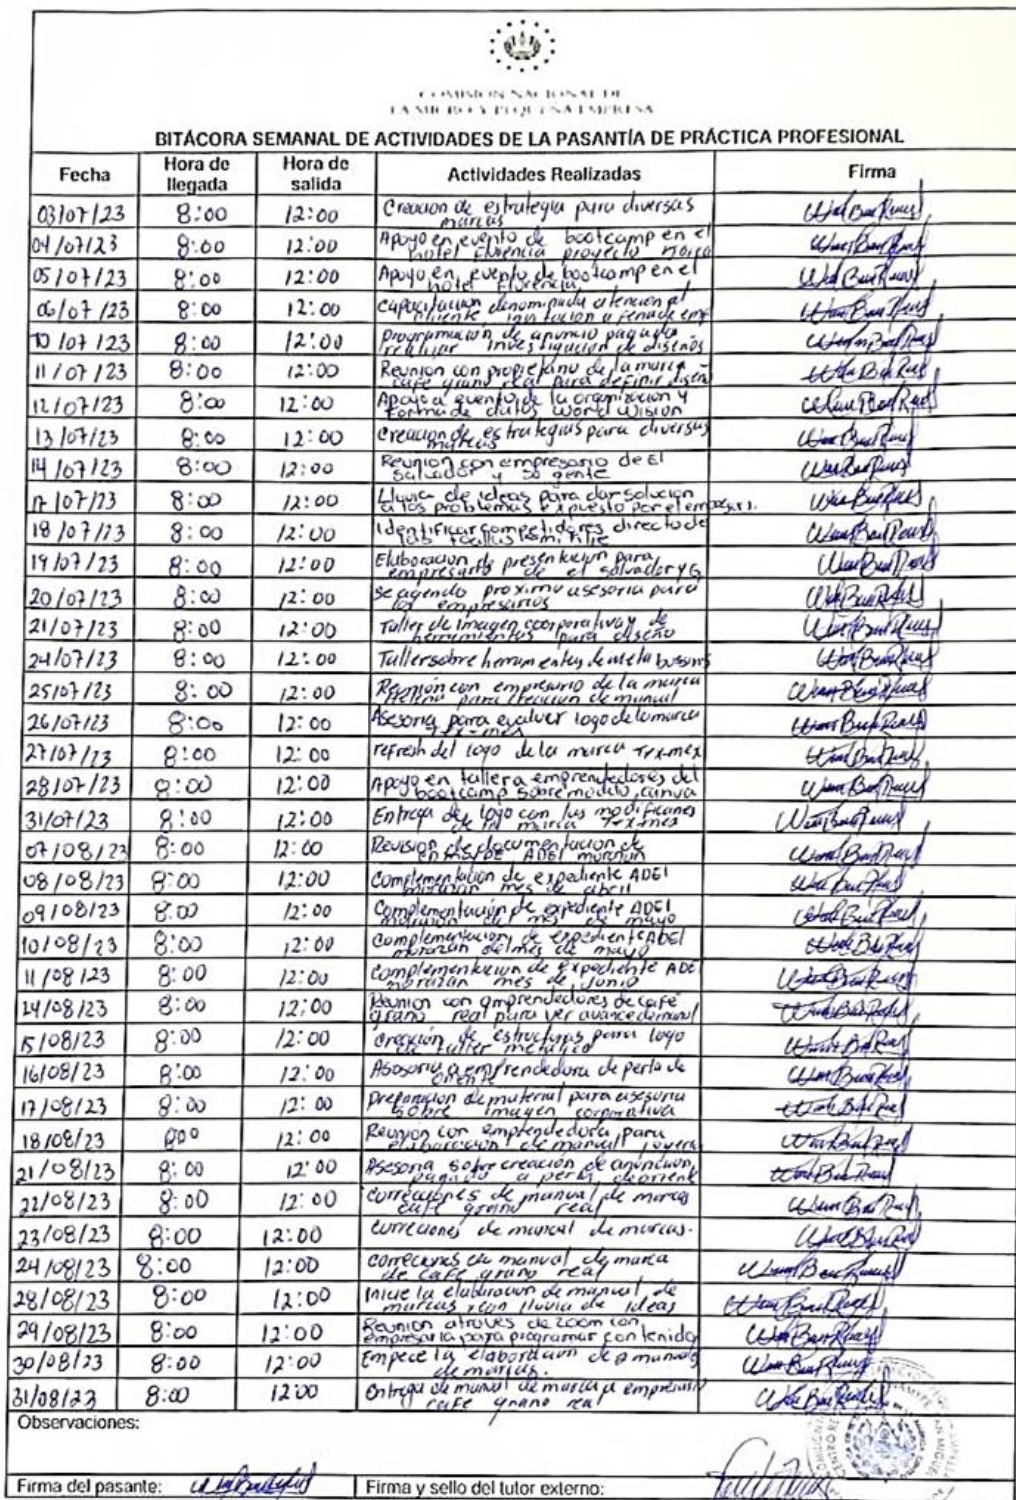 COMISION NACIONAL DE
LA MICRO Y PEQUEÑA EMPRESA
BITÁCORA SEMANAL DE ACTIVIDADES DE LA PASANTÍA DE PRÁCTICA PROFESIONAL
Fecha Hora de llegada Hora de salida Actividades Realizadas Firma
03/07/23 8:00 12:00 Creacion de estrategia para diversas
marcas
04/07/23 8:00 12:00 Apoyo en evento de bootcamp en el
hotel Florencia proyecto
05/07/23 8:00 12:00 Apoyo en evento de bootcamp en el
hotel Florencia
06/07/23 8:00 12:00 Capacitacion denominada atencion al
cliente invitacion a
10/07/23 8:00 12:00 programación de anuncio pagado
realizar investigacion de diseños
11/07/23 8:00 12:00 Reunion con propietario de la marca
cafe grano real para definir diseño
12/07/23 8:00 12:00 Apoyo a evento de la organizacion y
de datos World Wision
13/07/23 8:00 12:00 creacion de estrategias para diversas
marcas
14/07/23 8:00 12:00 Reunion con empresario de El
Salvador y su gente
17/07/23 8:00 12:00 Lluvia de ideas para dar solucion
a los problemas expuesto por el
18/07/23 8:00 12:00 Identificar competidores directo de
19/07/23 8:00 12:00 Elaboracion de presentacion para
empresario de el salvador y G
20/07/23 8:00 12:00 se agendo proximo asesoria para
los empresarios
21/07/23 8:00 12:00 Taller de imagen coorporativa y de
herramientas para diseño
24/07/23 8:00 12:00 Taller sobre herramientas de meta
25/07/23 8:00 12:00 Reunión con empresario de la marca
para creacion de manual
26/07/23 8:00 12:00 Asesoria para evaluer logo de la marca
27/07/23 8:00 12:00 refresh del logo de la marca
28/07/23 8:00 12:00 Apoyo en taller a emprendedores del
bootcamp sobre modulo canva
31/07/23 8:00 12:00 Entrega de logo con las
de la marca
07/08/23 8:00 12:00 Revision de documentacion de
ADEL morazan
08/08/23 8:00 12:00 Complementacion de expediente ADEL
morazan mes de abril
09/08/23 8:00 12:00 Complementación de expediente ADEL
morazan mes de mayo
10/08/23 8:00 12:00 complementacion de expediente ADEL
morazan del mes de mayo
11/08/23 8:00 12:00 complementacion de expediente ADEL
morazan mes de junio
14/08/23 8:00 12:00 Reunion con emprendedores de café
grano real para ver avance de manual
15/08/23 8:00 12:00 creación de estructuras para logo
de taller metalico
16/08/23 8:00 12:00 Asosoria a emprendedora de perla de
oriente
17/08/23 8:00 12:00 preparacion de material para asesoria
sobre imagen corporativa
18/08/23 12:00 Reunion con emprendedora para
elaboracion de manual joyeria
21/08/23 8:00 12:00 Asesoria sobre creación de
pagado a perla de oriente
22/08/23 8:00 12:00 correcciones de manual de marcas
cafe grano real
23/08/23 8:00 12:00 correciones de manual de marcas.
24/08/23 8:00 12:00 correciones de manual de marca
de cafe grano real
28/08/23 8:00 12:00 Inicie la elaboracion de manual de
marcas con lluvia de ideas
29/08/23 8:00 12:00 Reunion atraves de zoom con
empresaria para programar contenido
30/08/23 8:00 12:00 Empece la elaboracion de manual
de marcas.
31/08/23 8:00 12:00 Entrega de manual de marca a empresario
cafe grano real
Observaciones:
Firma del pasante: Firma y sello del tutor externo: